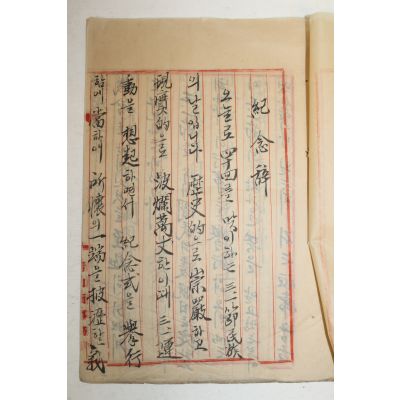 紀念辭
오늘로 四十四回를 맞이하는 三一節 民族
의 날입니다 歷史的으로 崇嚴하고
現實的으로 波爛萬丈한 이때 三·一運
動을 想起하면서 紀念式을 擧行
함에 當하야 所懷의 一端을 披瀝한 義